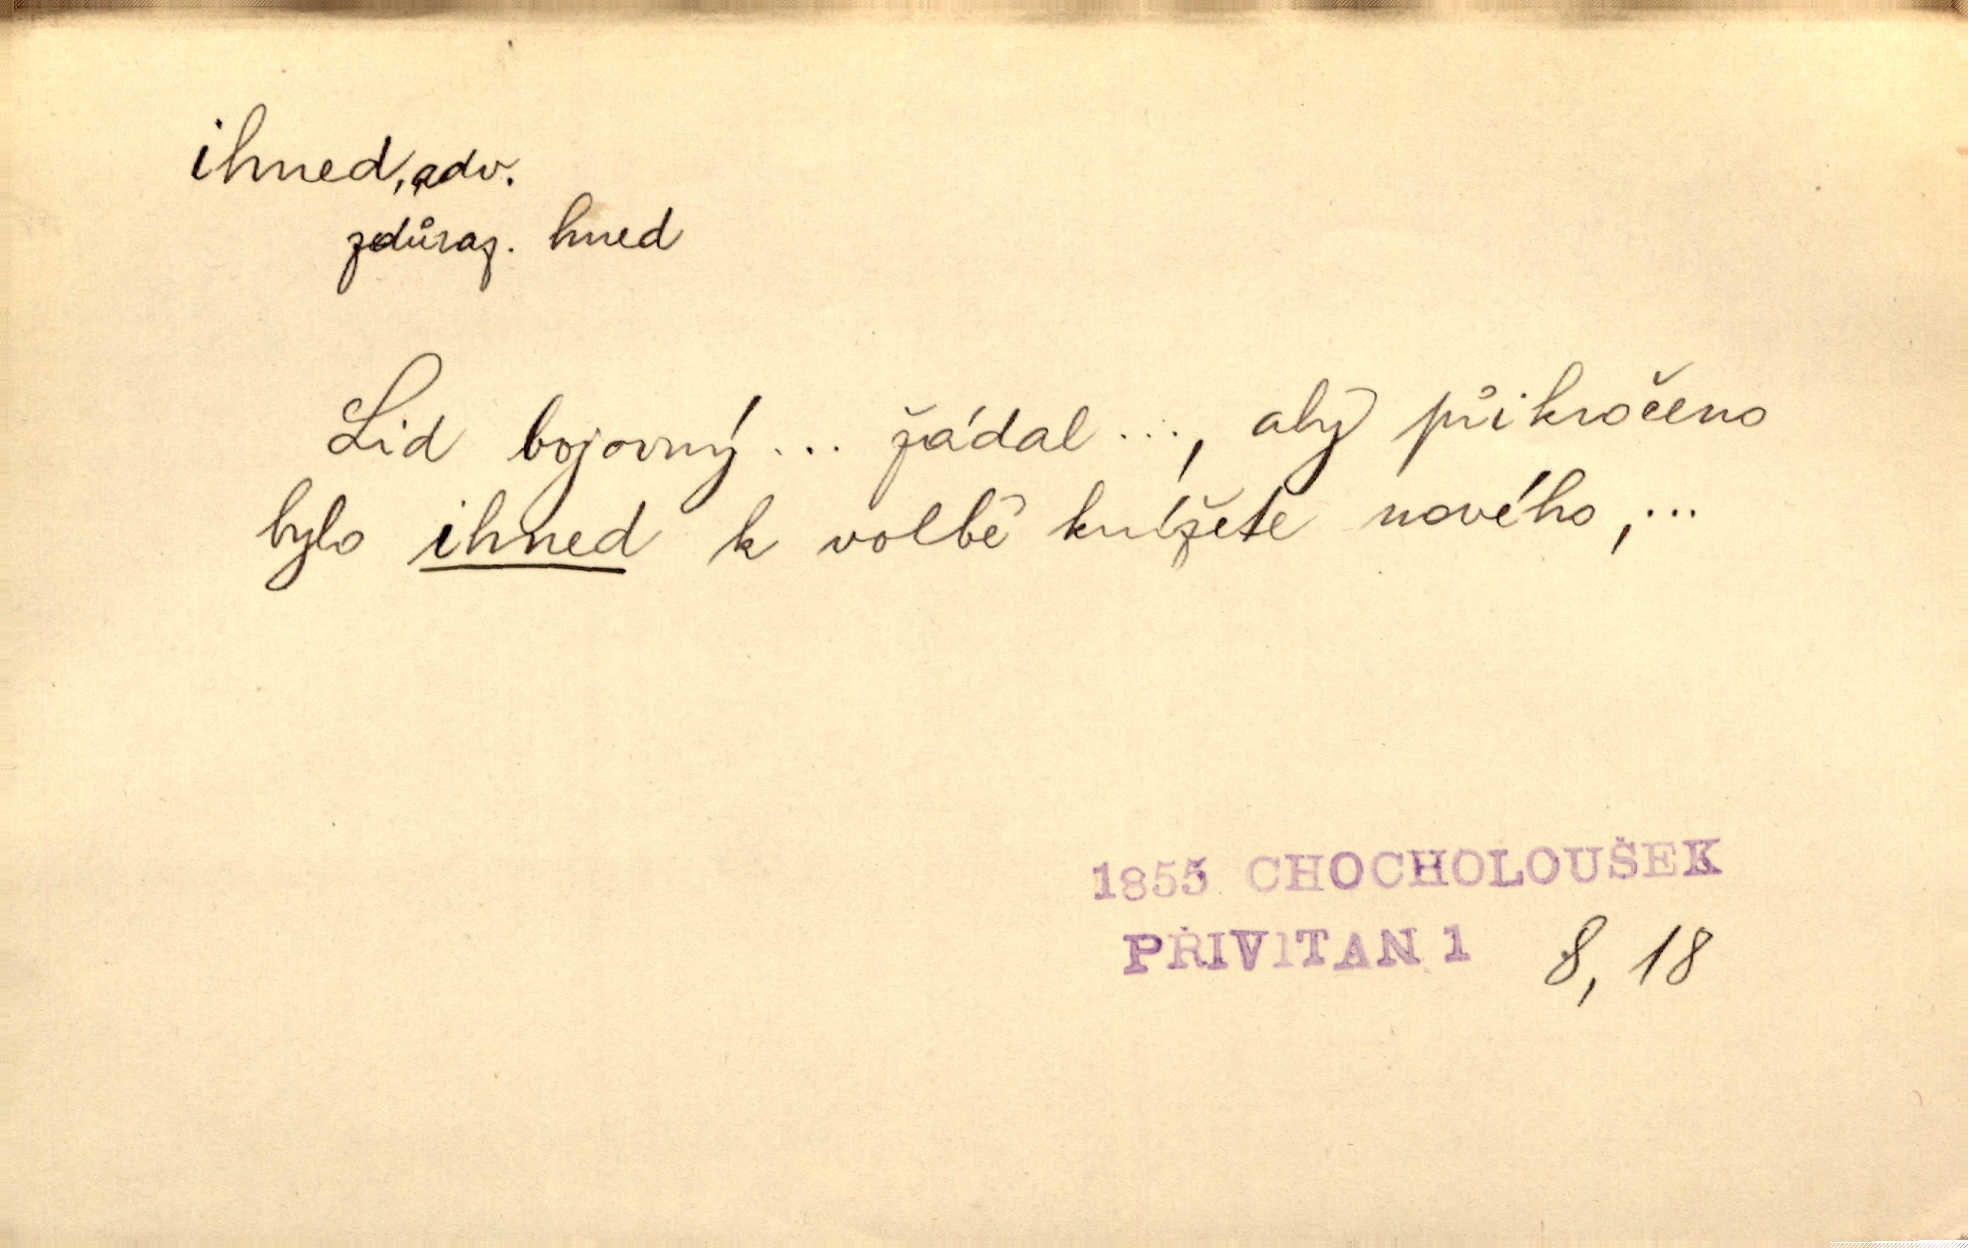 ihned, adv.
zdůraz. hned
Lid bojovný ... žádal ..., aby přikročeno
bylo ihned k volbě knížete nového, ...
1855 CHOCHOLOUŠEK
PŘIVITAN 1 8, 18